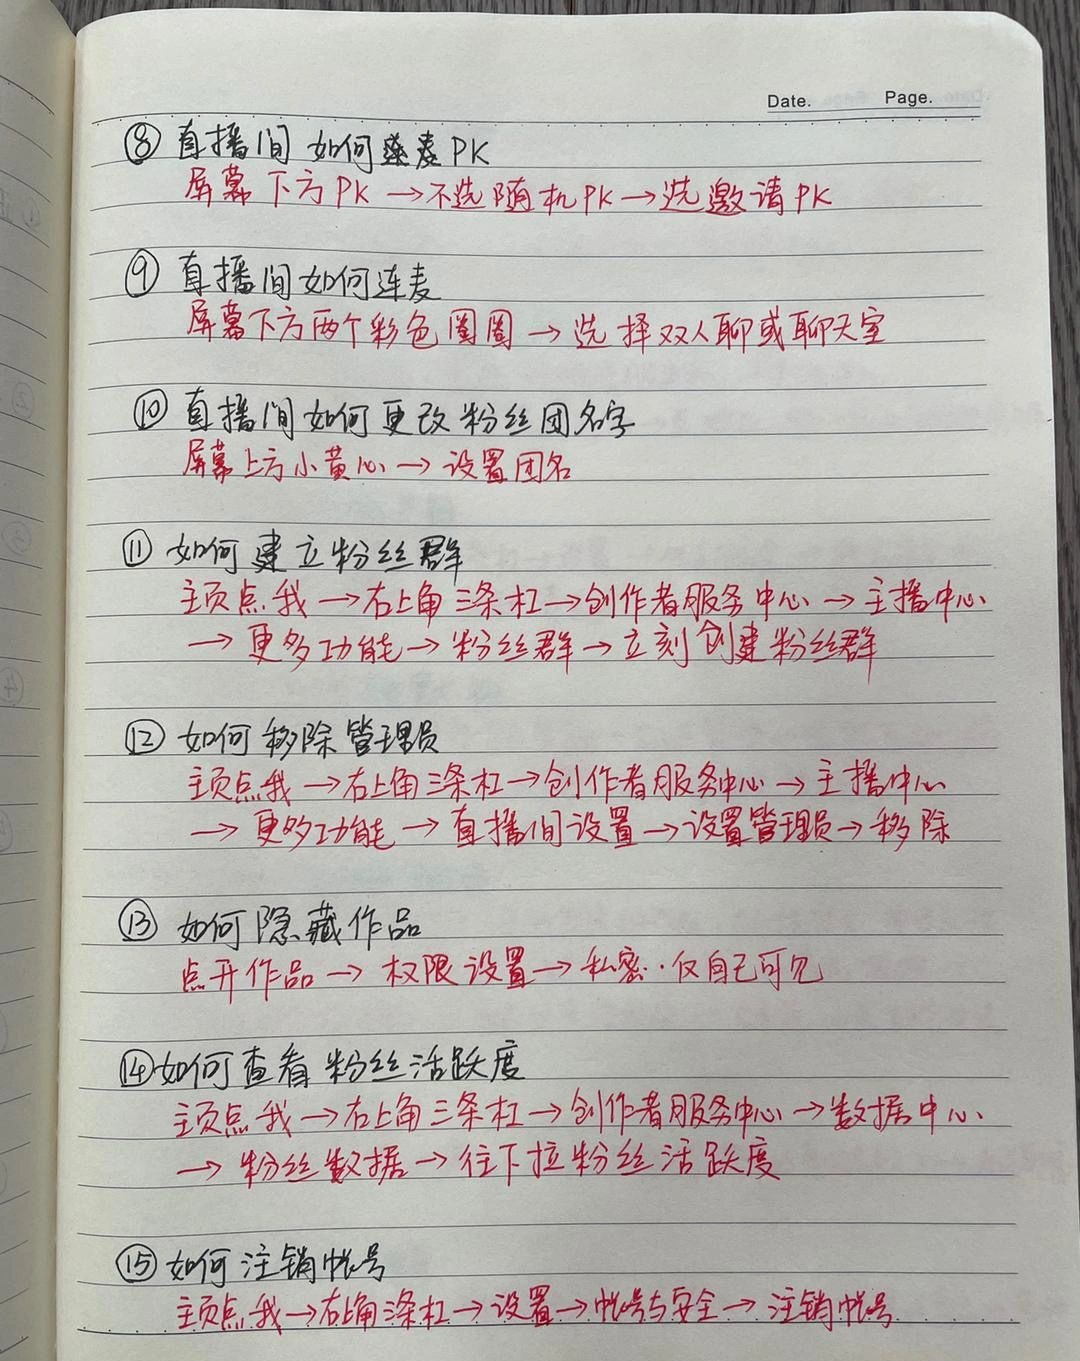 Date. Page.
⑧ 直播间如何连麦PK
屏幕下方PK→不选随机PK→选邀请PK
⑨ 直播间如何连麦
屏幕下方两个彩色圈圈→选择双人聊或聊天室
⑩ 直播间如何更改粉丝团名字
屏幕上方小黄心→设置团名
⑪ 如何建立粉丝群
主页点我→右上角三条杠→创作者服务中心→主播中心
→更多功能→粉丝群→立刻创建粉丝群
⑫ 如何移除管理员
主页点我→右上角三条杠→创作者服务中心→主播中心
→更多功能→直播间设置→设置管理员→移除
⑬ 如何隐藏作品
点开作品→权限设置→私密·仅自己可见
⑭ 如何查看粉丝活跃度
主页点我→右上角三条杠→创作者服务中心→数据中心
→粉丝数据→往下拉粉丝活跃度
⑮ 如何注销帐号
主页点我→右上角三条杠→设置→帐号与安全→注销帐号